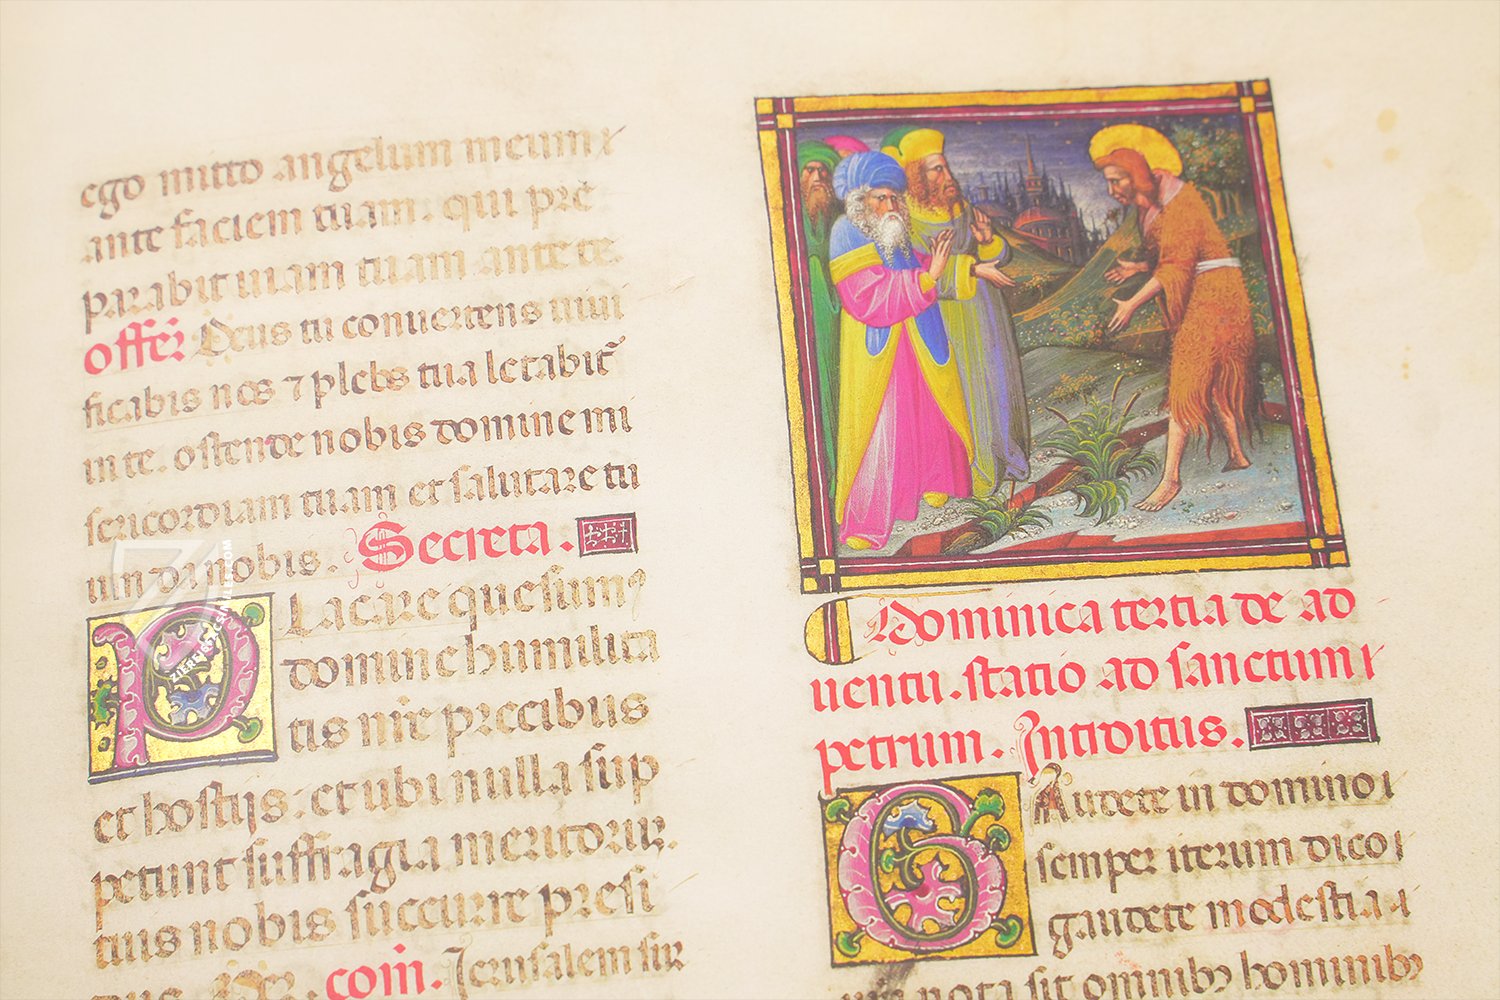 ego mitto angelum meum
ante faciem tuam. qui pre
parabit uiam tuam ante te.
offer̄ Deus tu conuertens uiui
ficabis nos ⁊ plebs tua letabit̄
in te. ostende nobis domine mi
sericordiam tuam et salutare tu
um da nobis. Secreta.
PLacare quesum⁹
domine humilita
tis nr̄e precibus
et hostijs: et ubi nulla sup
petunt suffragia meritoruꝝ.
tuis nobis succurre presi
com̄. Jerusalem sur
ZIEREIS FACSIMILES.COM
Dominica tertia de ad
uentu. statio ad sanctum
petrum. Introitus.
GAudete in domino
semper iterum dico
gaudete modestia
nota sit omnibꝫ hominibꝫ